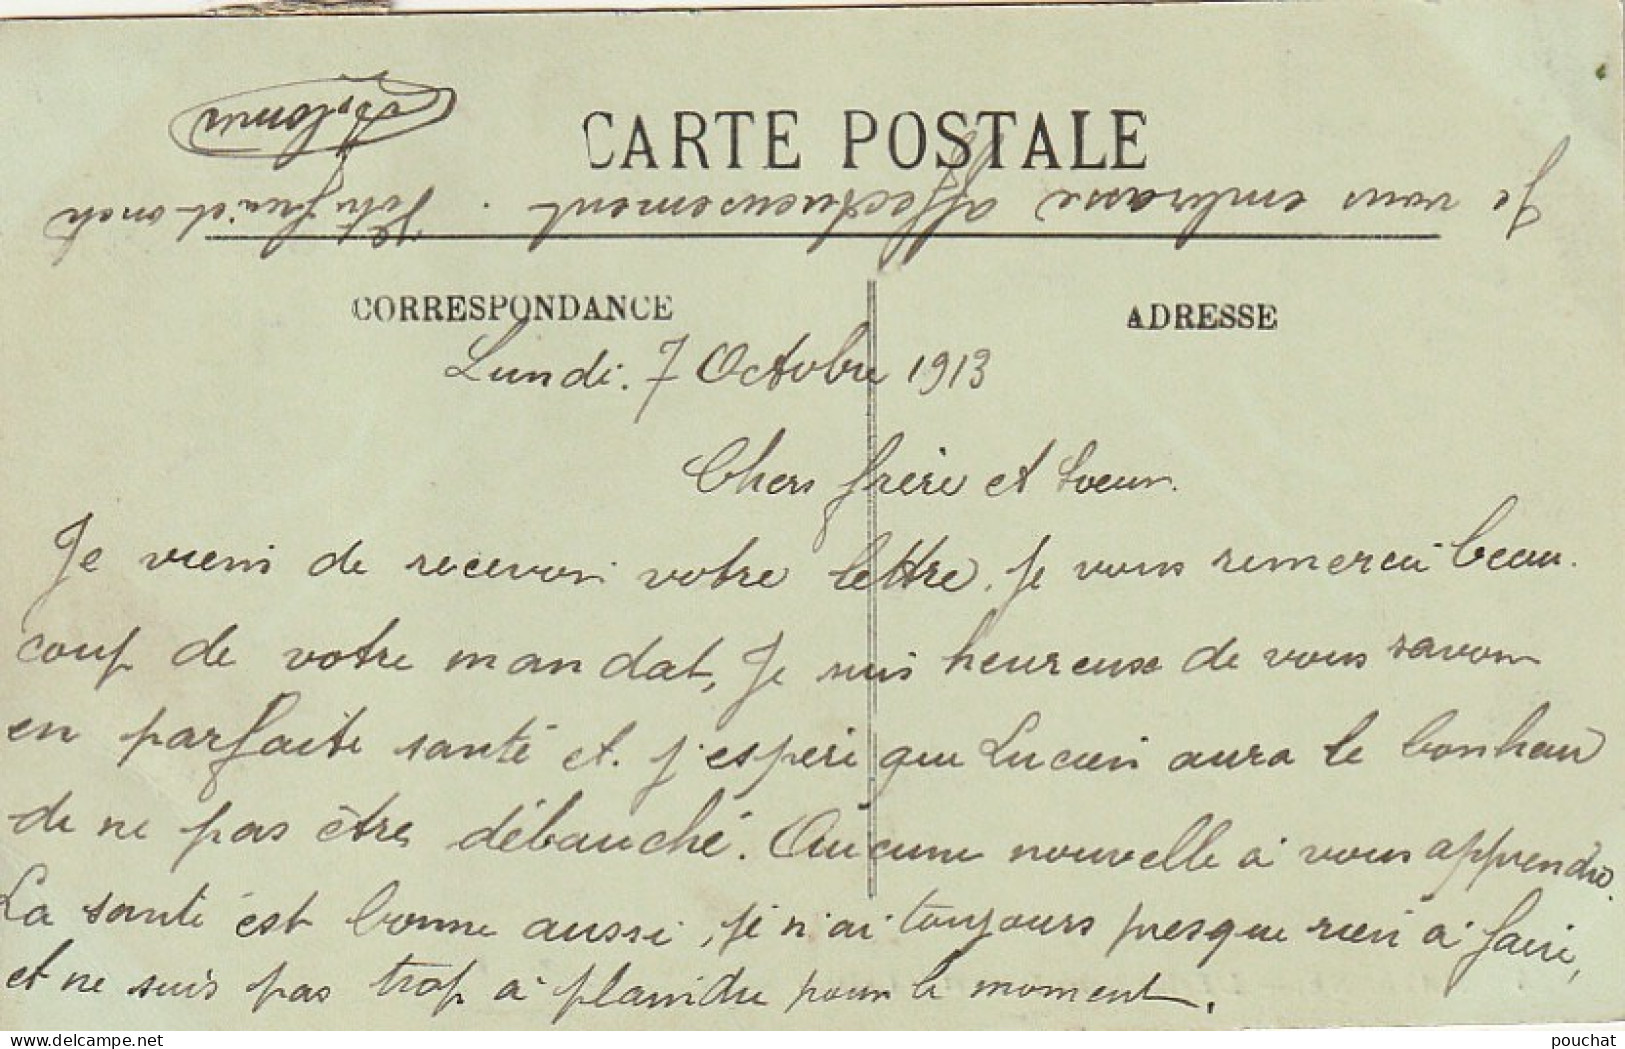 CARTE POSTALE
CORRESPONDANCE
ADRESSE
Lundi. 7 Octobre 1913
Chers frère et Soeur.
Je viens de recevoir votre lettre. Je vous remercie beau.
coup de votre mandat, Je suis heureuse de vous savoir
en parfaite santé et. j'espère que Lucien aura le bonheur
de ne pas être débauché. Aucune nouvelle à vous apprendre.
La santé est bonne aussi, je n'ai toujours presque rien à faire,
et ne suis pas trop à plaindre pour le moment.
Je vous embrasse affectueusement. Votre frère et oncle
delcampe.net
pouchat